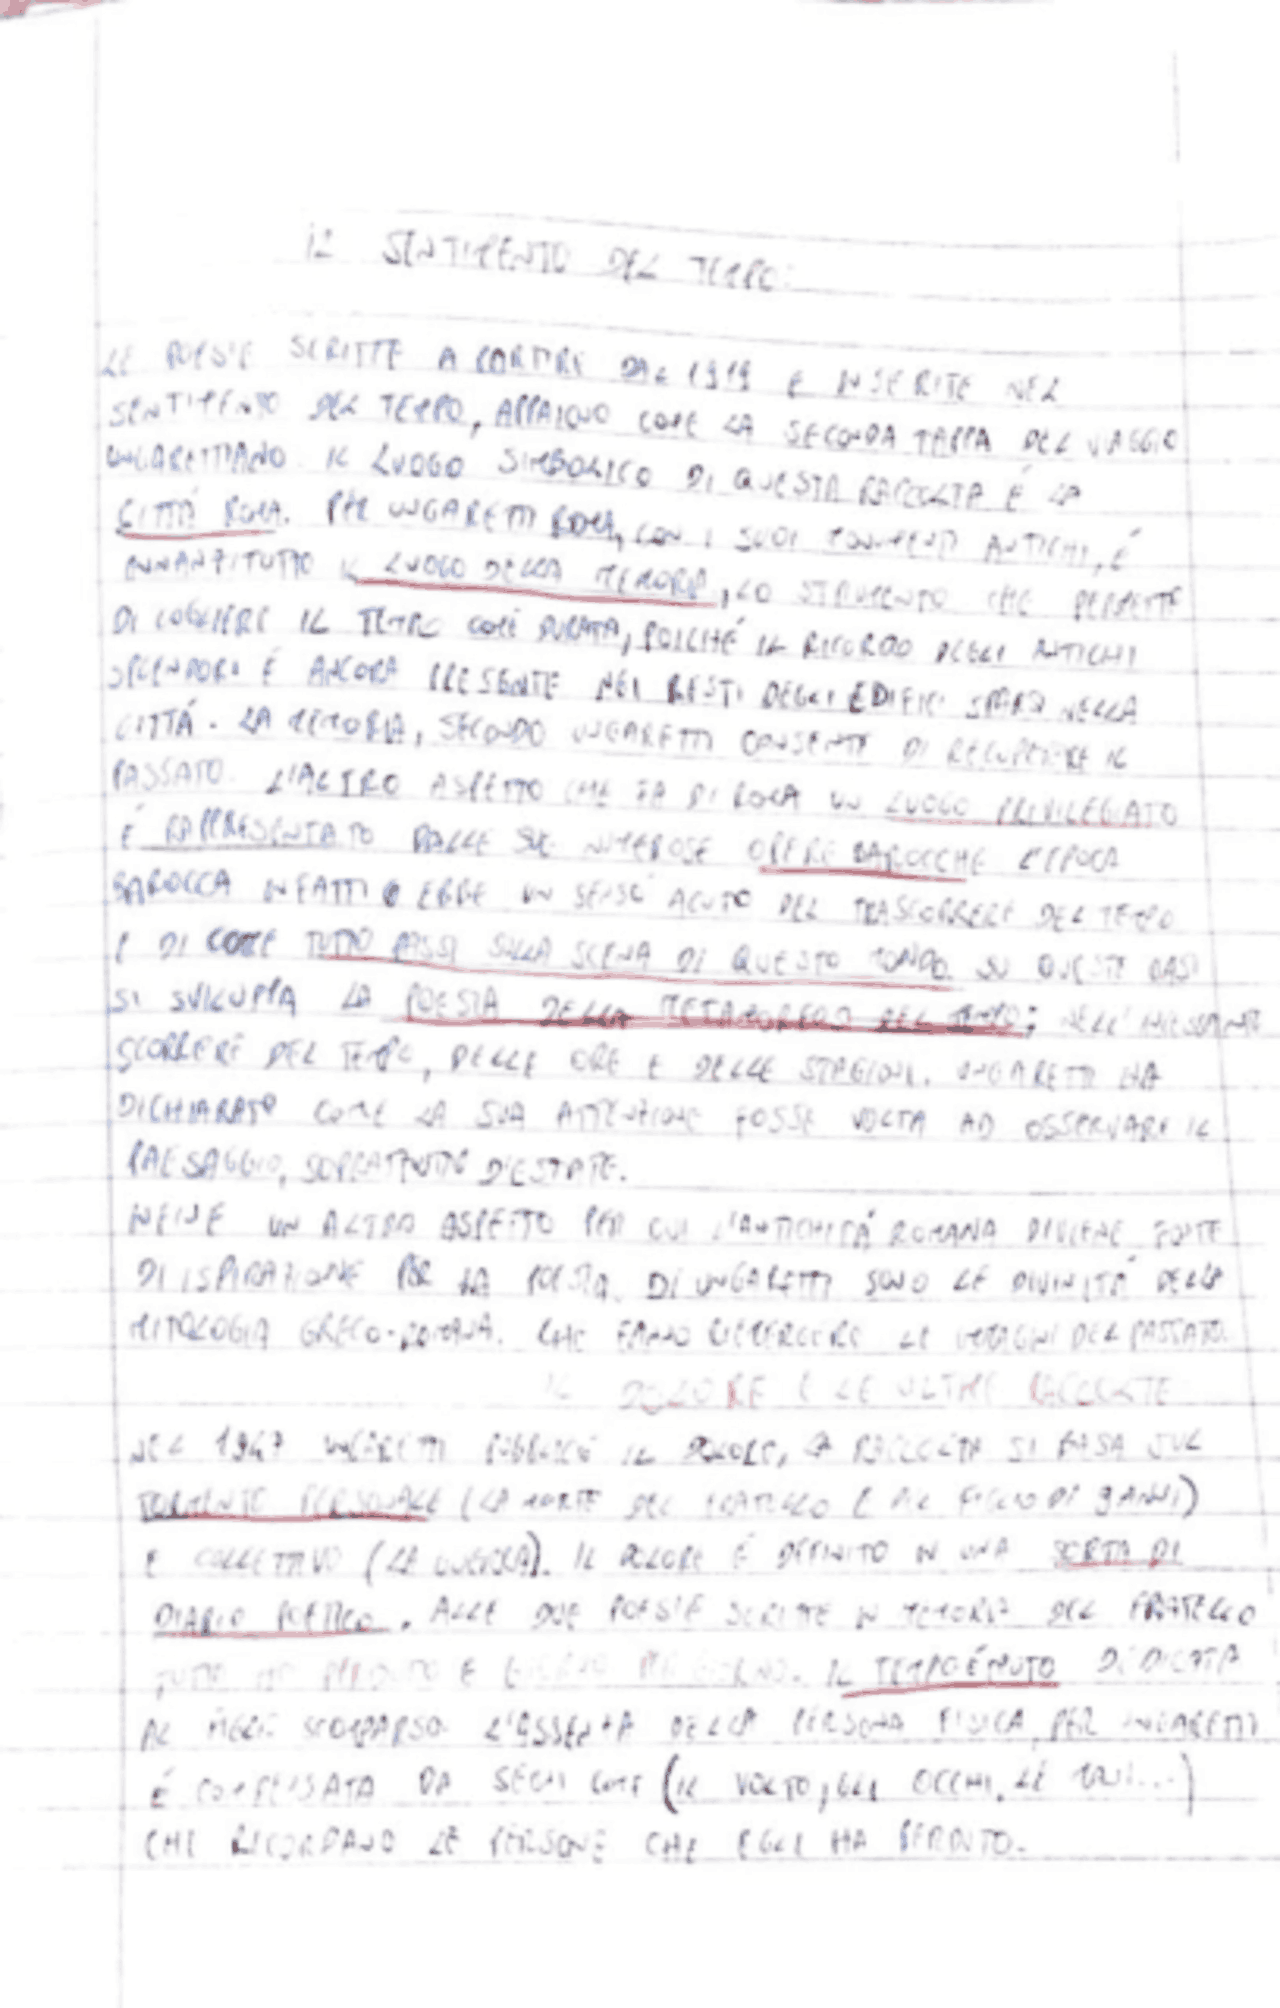 IL SENTIMENTO DEL TEMPO:
LE POESIE SCRITTE A PARTIRE DAL 1919 E INSERITE NEL
SENTIMENTO DEL TEMPO, APPAIONO COME LA SECONDA TAPPA DEL VIAGGIO
UNGARETTIANO. IL LUOGO SIMBOLICO DI QUESTA RACCOLTA É LA
CITTÁ ROMA. PER UNGARETTI ROMA, CON I SUOI MONUMENTI ANTICHI, É
INNANZITUTTO IL LUOGO DELLA MEMORIA, LO STRUMENTO CHE PERMETTE
DI COGLIERE IL TEMPO COME DURATA, POICHÉ IL RICORDO DEGLI ANTICHI
SPLENDORI É ANCORA PRESENTE NEI RESTI DEGLI EDIFICI SPARSI NELLA
CITTÁ. LA MEMORIA, SECONDO UNGARETTI CONSENTE DI RECUPERARE IL
PASSATO. L'ALTRO ASPETTO CHE FA DI ROMA UN LUOGO PRIVILEGIATO
É RAPPRESENTATO DALLE SUE NUMEROSE OPERE BAROCCHE L'EPOCA
BAROCCA INFATTI EBBE UN SENSO ACUTO DEL TRASCORRERE DEL TEMPO
E DI COME TUTTO PASSI SULLA SCENA DI QUESTO MONDO. SU QUESTE BASI
SI SVILUPPA LA POESIA DELLA METAMORFOSI DEL TEMPO; NELL'INCESSANTE
SCORRERE DEL TEMPO, DELLE ORE E DELLE STAGIONI. UNGARETTI HA
DICHIARATO COME LA SUA ATTENZIONE FOSSE VOLTA AD OSSERVARE IL
PAESAGGIO, SOPRATTUTTO D'ESTATE.
UN ALTRO ASPETTO PER CUI L'ANTICHITÁ ROMANA DIVIENE FONTE
DI ISPIRAZIONE PER LA POESIA DI UNGARETTI SONO LE DIVINITÁ DELLA
MITOLOGIA GRECO-ROMANA. CHE FANNO RIEMERGERE LE IMMAGINI DEL PASSATO.
IL DOLORE E LE ULTIME RACCOLTE
NEL 1947 UNGARETTI PUBBLICÓ IL DOLORE, RACCOLTA SI BASA SUL
TORMENTO PERSONALE (LA MORTE DEL FRATELLO E DEL FIGLIO DI 9 ANNI)
E COLLETTIVO (LA GUERRA). IL DOLORE É DEFINITO IN UNA SORTA DI
DIARIO POETICO. ALLE DUE POESIE SCRITTE IN MEMORIA DEL FRATELLO
TUTTO HO PERDUTO E GIORNO PER GIORNO. IL TEMPO É MUTO DEDICATA
AL SCOMPARSO. L'ASSENZA DELLA PERSONA FISICA PER UNGARETTI
É COMPENSATA DA SEGNI COME (IL VOLTO, GLI OCCHI, LE MANI...)
CHE RICORDANO LE PERSONE CHE EGLI HA PERDUTO.